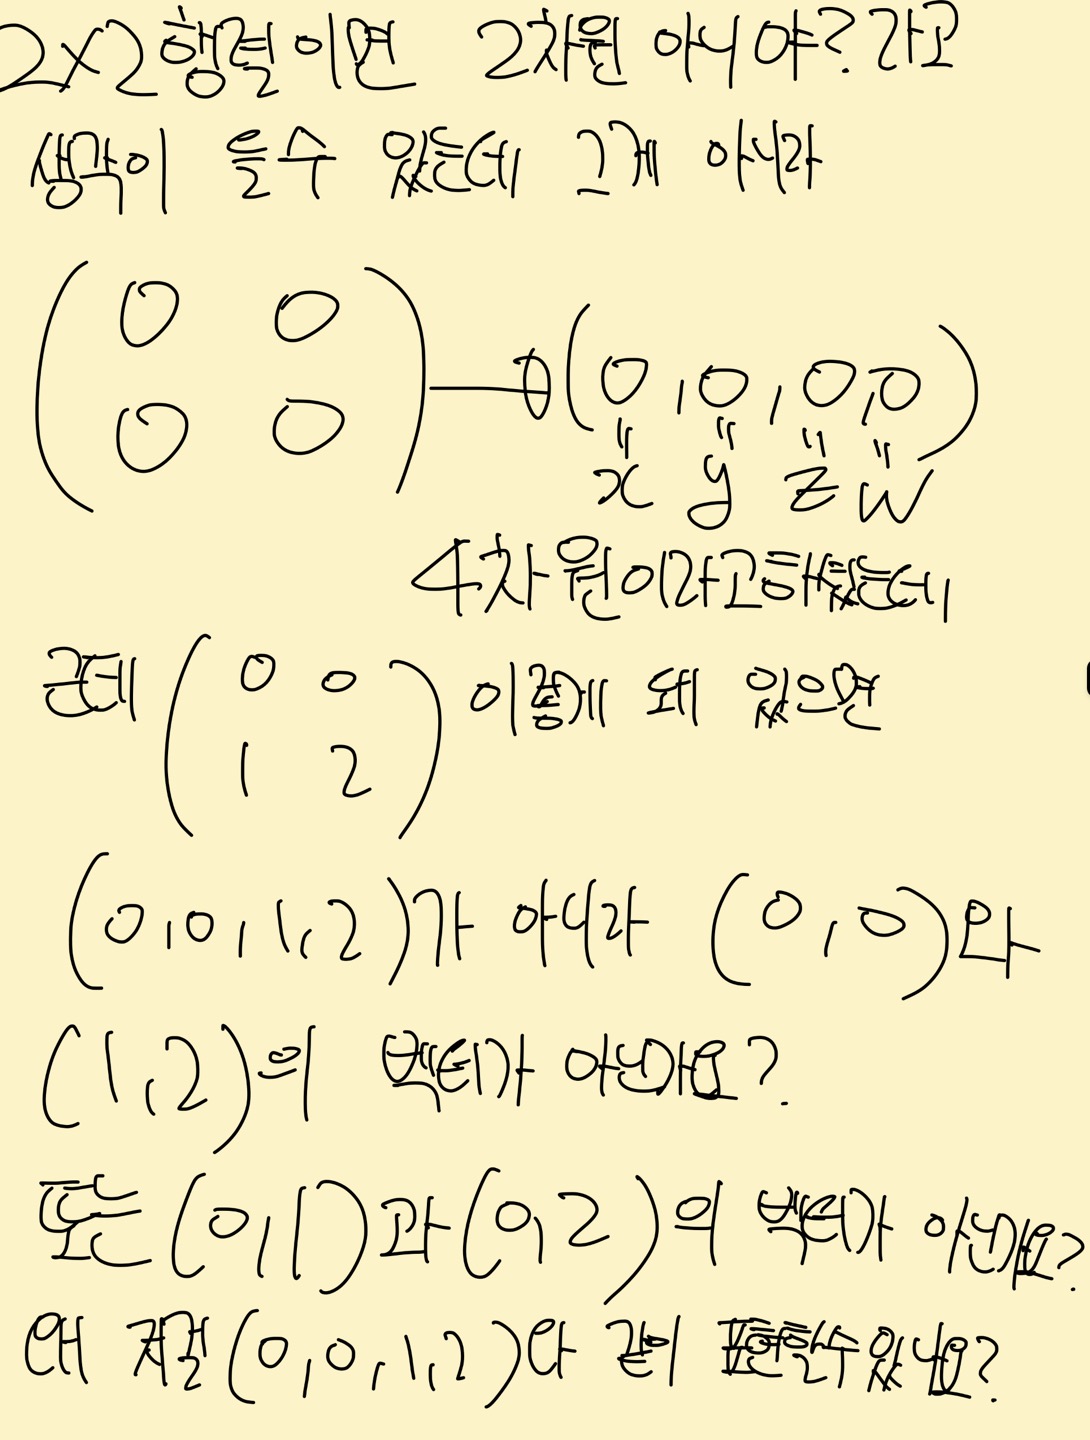 2×2행렬이면 2차원 아니야?라고
생각이 들수 있는데 그게 아니라
(0 0
0 0) → (0, 0, 0, 0)
" " " "
x y z w
4차원이라고하였는데
근데 (0 0
1 2) 이렇게 돼 있으면
(0, 0, 1, 2)가 아니라 (0, 0)와
(1, 2)의 벡터가 아닌가요?
또는 (0, 1)과 (0, 2)의 벡터가 아닌가요?
왜 저걸 (0, 0, 1, 2)와 같이 표현할수있나요?